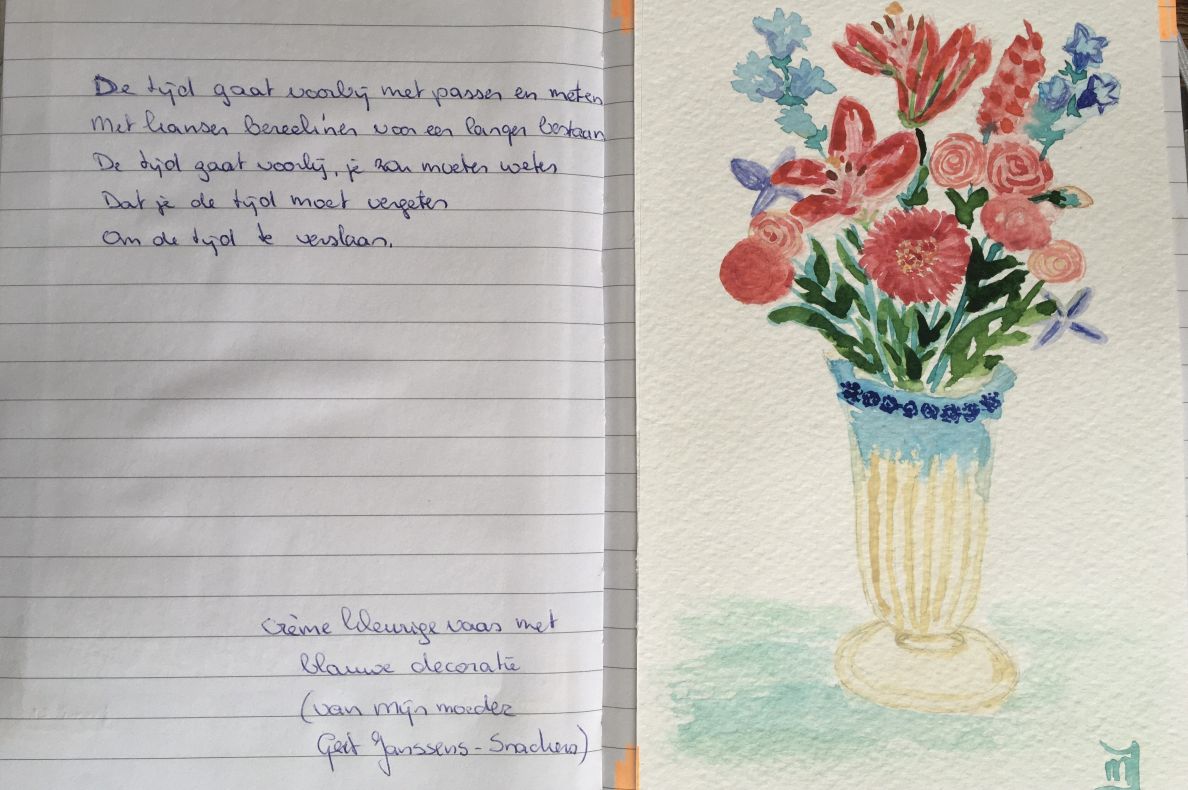 De tijd gaat voorbij met passen en meten
Met kansen berekenen voor een langer bestaan
De tijd gaat voorbij, je zou moeten weten
Dat je de tijd moet vergeten
Om de tijd te verslaan.
Crème kleurige vaas met
blauwe decoratie
(van mijn moeder
Janssens-